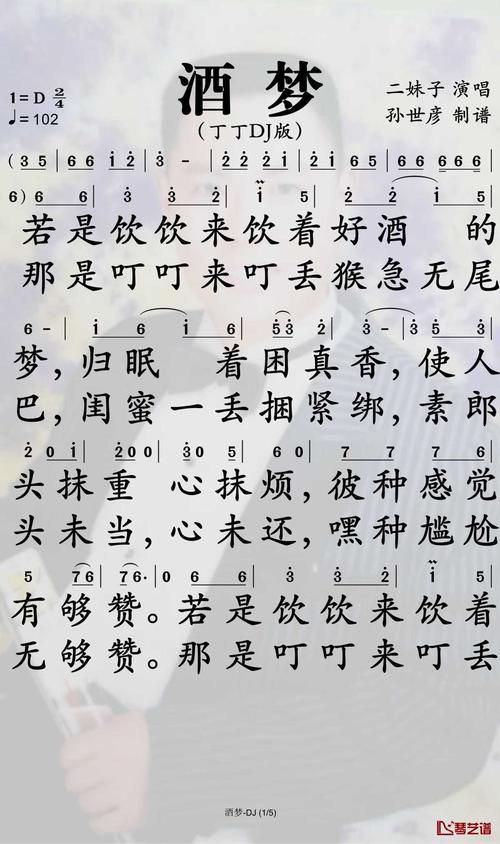 酒梦
(丁丁DJ版)
1=D 2/4
♩=102
二妹子 演唱
孙世彦 制谱
(3 5 | 6 6 i 2 | 3 - | 2 2 2 i | 2 2 i 6 | 5 5 6 i | 6 6 6 6 6 6 |
6) 6 6 | 3 3 2 2 | i i 5 | 2 2 | 2 6 i 5 |
若是饮饮来饮着好酒 的
那是叮叮来叮丢猴急无尾
6 - | i 6 | i 2 6 6 | 5 3 2 | 3 - | 3 5 5 3 |
梦,归眠 着困真香,使人
巴,闺蜜一丢捆紧绑,素郎
2 0 i | 2 0 0 2 | 3 0 5 | 6 0 6 | 7 7 7 6 |
头抹重 心抹烦,彼种感觉
头未当,心未还,嘿种尴尬
5 7 6 | 7 6· | 0 6 6 | 3 3 2 2 | i i 5 |
有够赞。若是饮饮来饮着
无够赞。那是叮叮来叮丢
酒梦-DJ (1/5)
琴艺谱